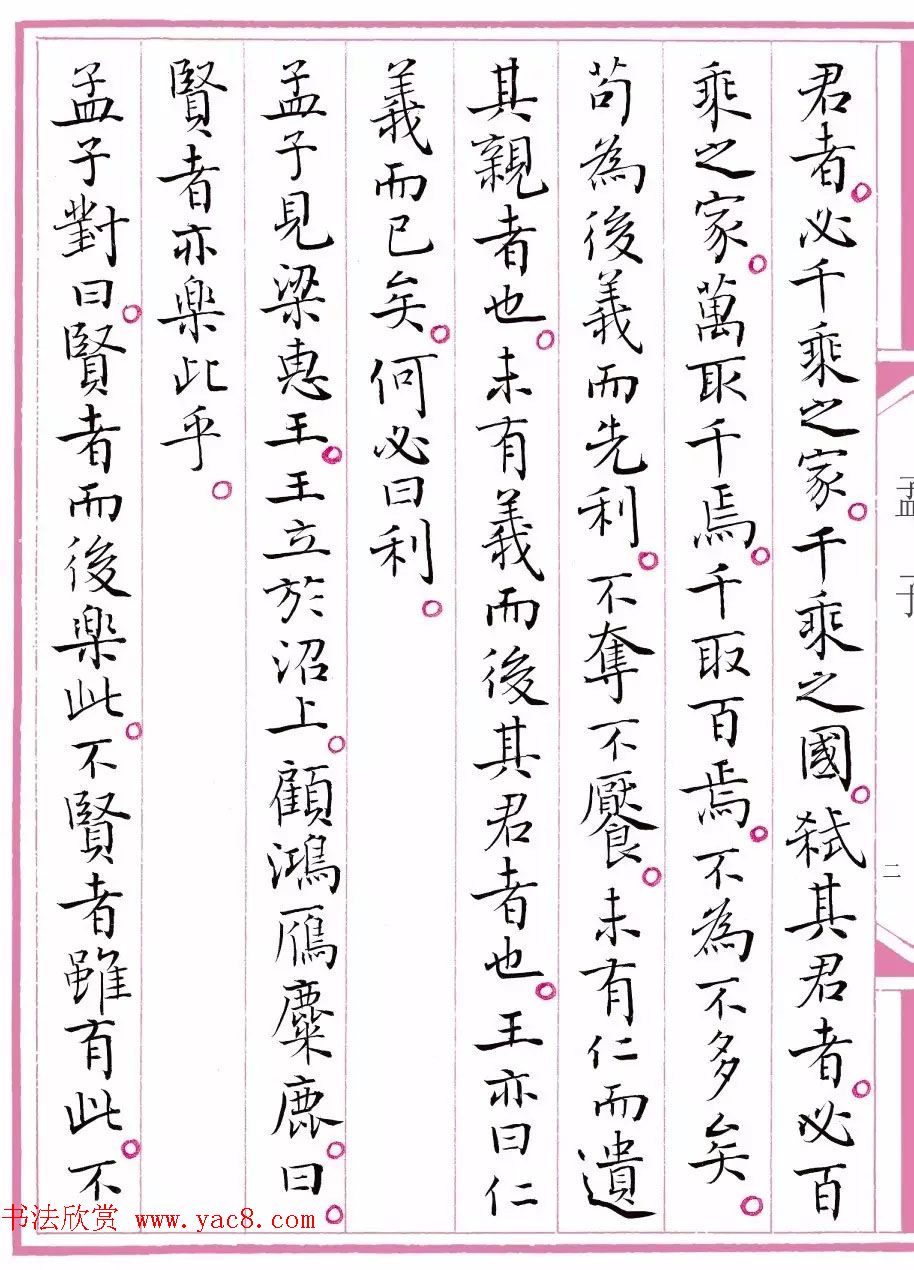 君者。必千乘之家。千乘之國。弒其君者。必百
乘之家。萬取千焉。千取百焉。不為不多矣。
苟為後義而先利。不奪不饜。未有仁而遺
其親者也。未有義而後其君者也。王亦曰仁
義而已矣。何必曰利。
孟子見梁惠王。王立於沼上。顧鴻雁麋鹿。曰。
賢者亦樂此乎。
孟子對曰。賢者而後樂此。不賢者雖有此。不
孟子
二
书法欣赏 www.yac8.com